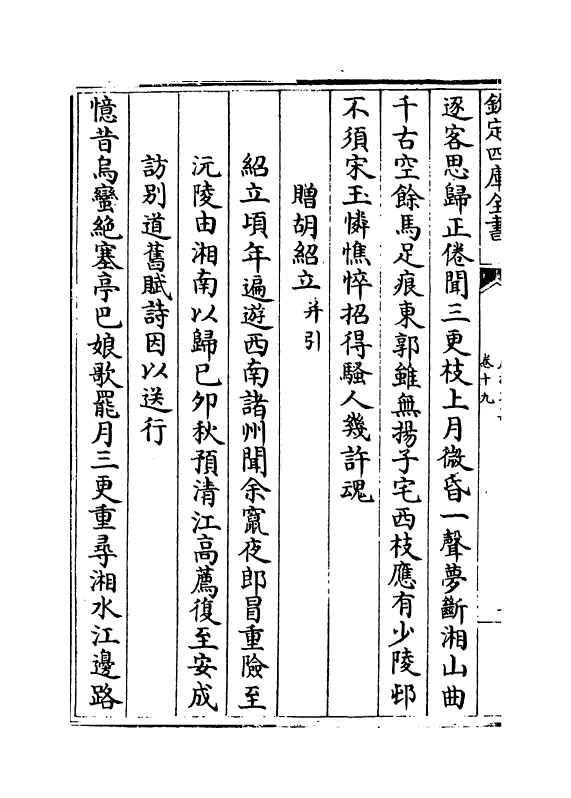 欽定四庫全書
卷十九
逐客思歸正倦聞三更枝上月微昏一聲夢斷湘山曲
千古空餘馬足痕東郭雖無揚子宅西枝應有少陵邨
不須宋玉憐憔悴招得騷人幾許魂
贈胡紹立并引
紹立頃年遍遊西南諸州聞余竄夜郎冒重險至
沅陵由湘南以歸已卯秋預清江高薦復至安成
訪别道舊賦詩因以送行
憶昔烏蠻絶塞亭巴娘歌罷月三更重尋湘水江邊路